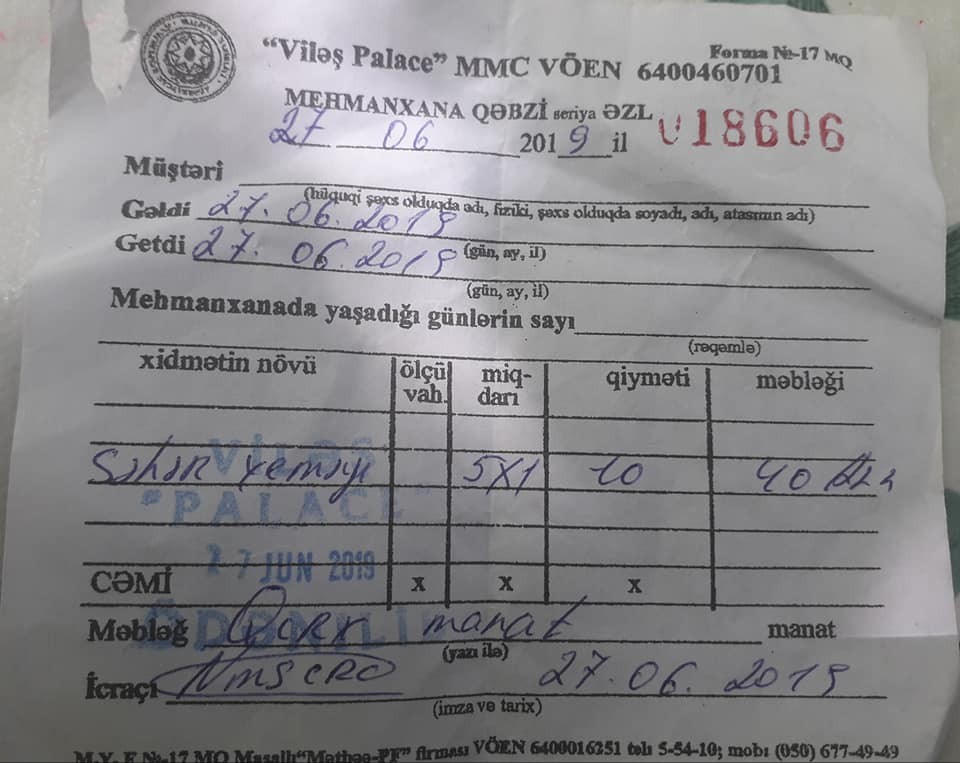 "Viləş Palace" MMC VÖEN 6400460701
Forma №-17 MQ
MEHMANXANA QƏBZİ seriya ƏZL 018606
27 06 2019 il
Müştəri
(hüquqi şəxs olduqda adı, fiziki, şəxs olduqda soyadı, adı, atasının adı)
Gəldi 27.06.2019
(gün, ay, il)
Getdi 27.06.2019
(gün, ay, il)
Mehmanxanada yaşadığı günlərin sayı
(rəqəmlə)
xidmətin növü ölçü vah. miq-darı qiyməti məbləği
Səhər yeməyi 5X1 10 40
VİLƏŞ
"PALACE"
27 JUN 2019
ÖDƏNİLİ
CƏMİ x x x
Məbləğ manat manat
(yazı ilə)
İcraçı 27.06.2019
(imza və tarix)
M.Y. F №-17 MQ Masallı "Mətbəə-PF" firması VÖEN 6400016251 tel: 5-54-10; mobi (050) 677-49-49